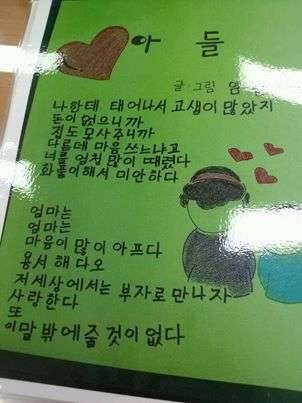 아 들
글 그림
나한테 태어나서 고생이 많았지
돈이 없으니까
집도 못사주니까
다른데 마음쓰느냐고
너를 엄청 많이 때렸다
화풀이해서 미안하다
엄마는
엄마는
마음이 많이 아프다
용서 해 다오
저 세상에서는 부자로 만나자
사랑한다
또
이말 밖에 줄 것이 없다